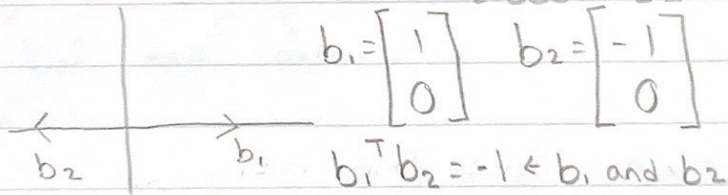 b₁ = [1 0] b₂ = [-1 0]
b₂ b₁
b₁ᵀ b₂ = -1 ← b₁ and b₂